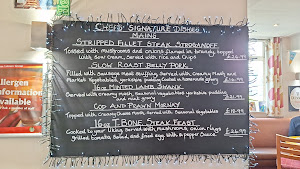 Chefs' Signature Dishes
Mains
Stripped Fillet Steak Stroganoff
Tossed with mushrooms and onions flamed in brandy, topped
with Sour Cream, Served with rice and Chips £26.99
Slow Roast Belly Pork
Filled with Sausage meat stuffing Served with Creamy Mash and
16oz Minted Lamb Shank
Served with creamy mash, seasonal vegetables yorkshire pudding
and mint gravy
Cod and Prawn Mornay
Topped with Creamy Cheese Mash, Served with Seasonal Vegetables £18.99
16oz T-Bone Steak Feast
Cooked to your liking Served with mushrooms, onion rings £26.99
grilled tomato, Salad, and fried egg with a pepper Sauce
Allergen
Information
Available